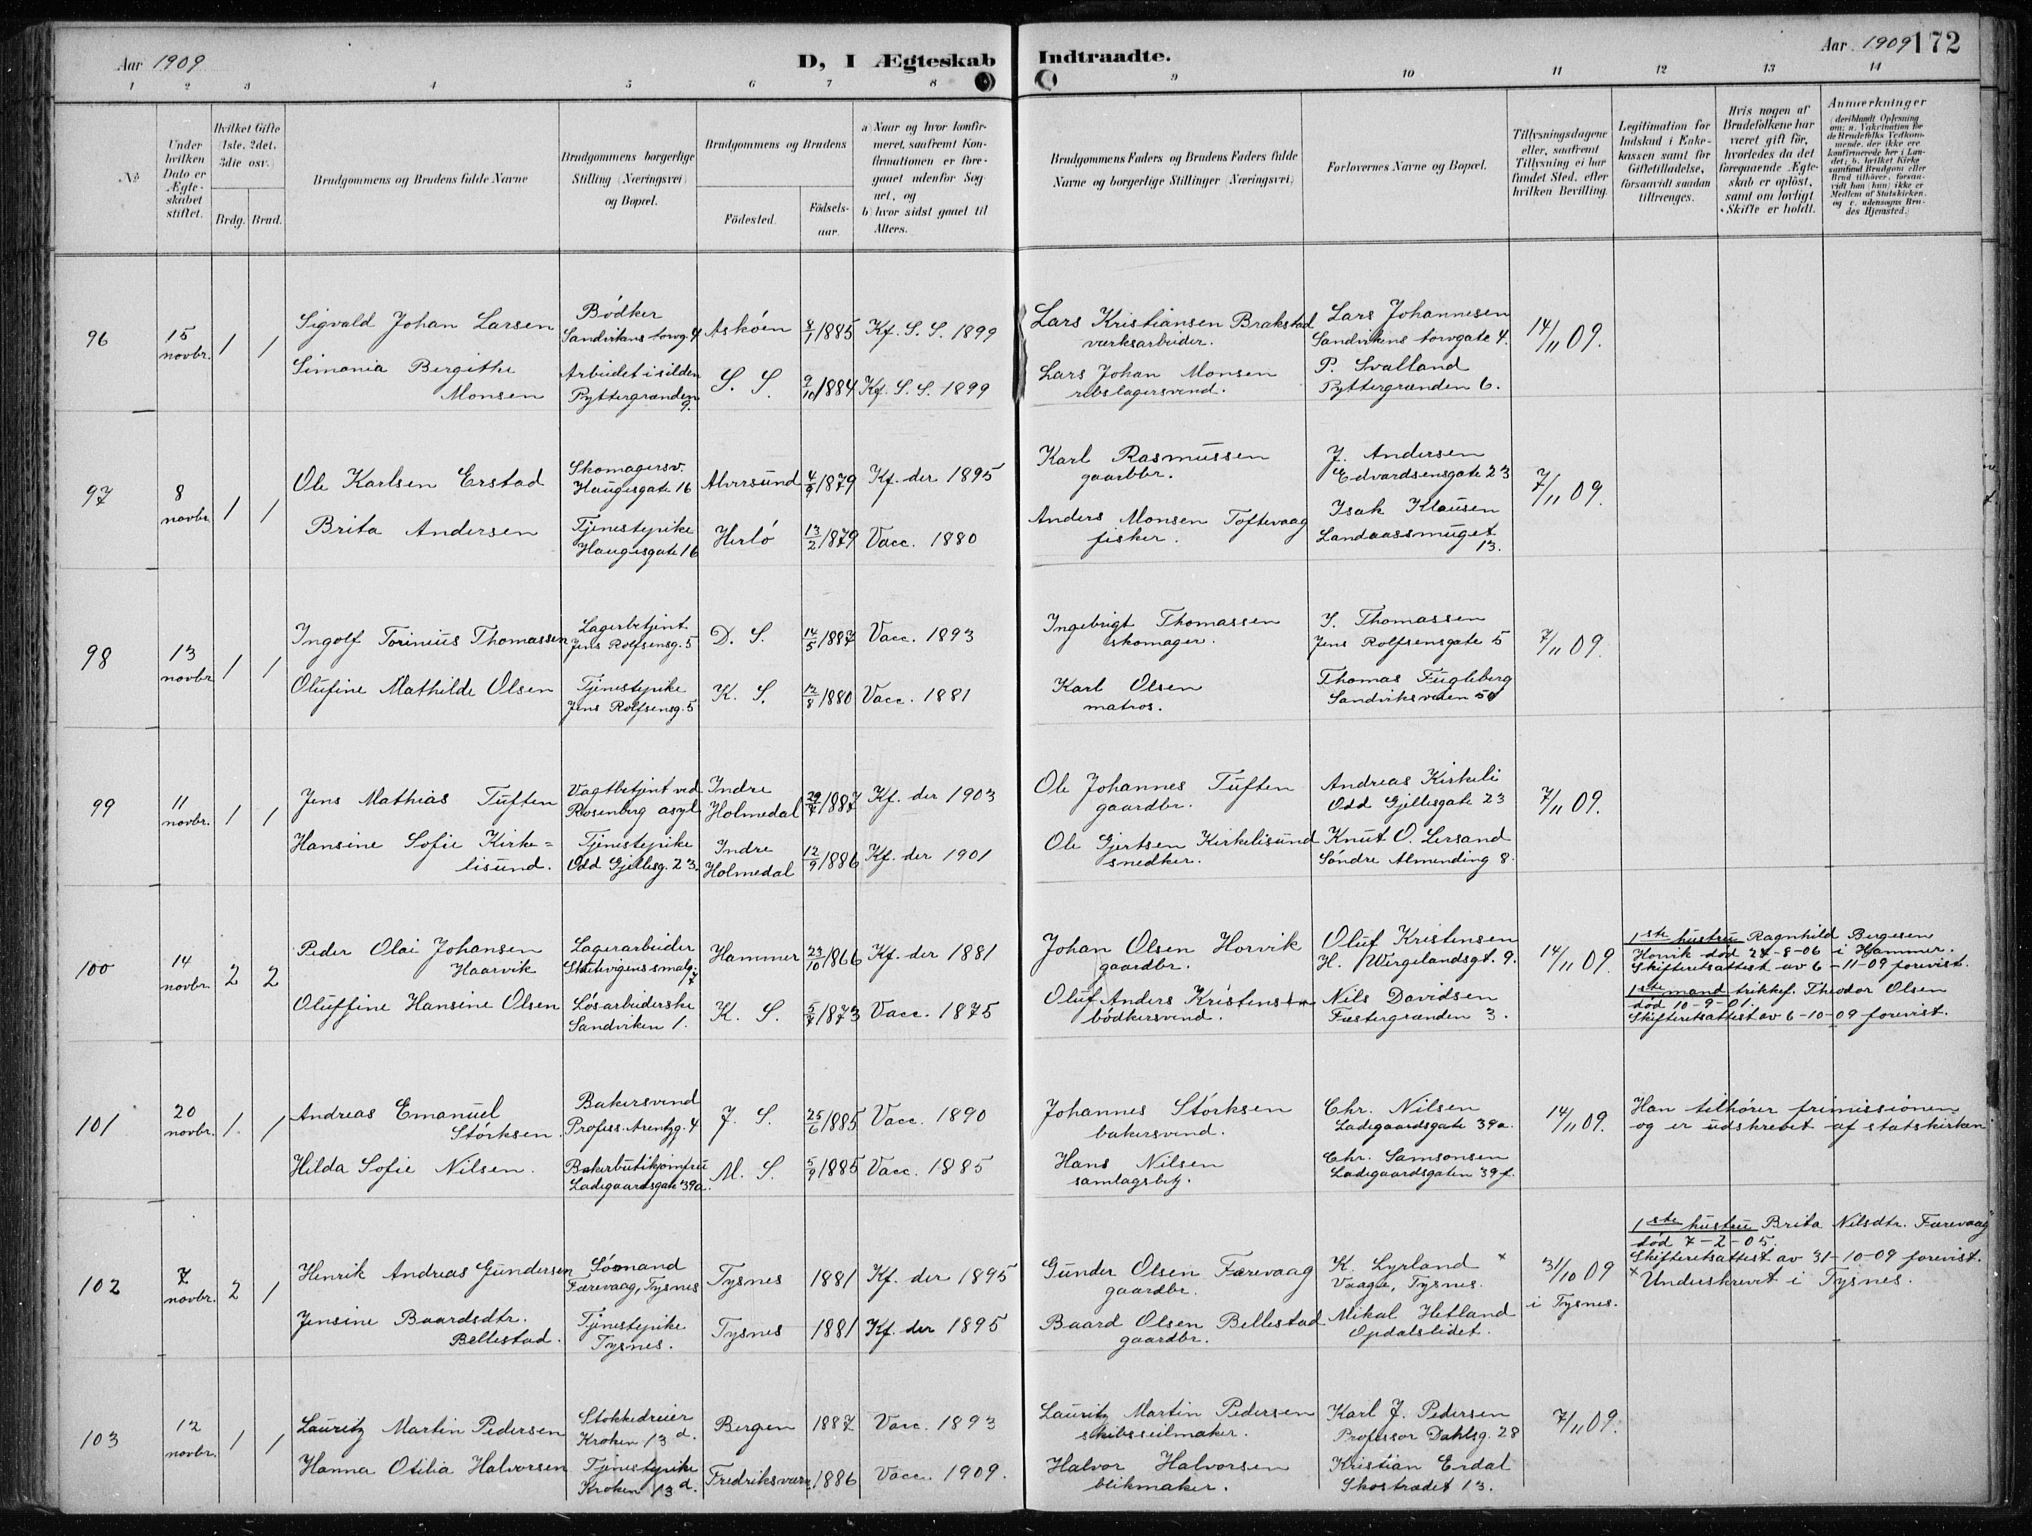 Aar 1909
D, I Ægteskab Indtraadte.
Aar 1909 172
1 2 3 4 5 6 7 8 9 10 11 12 13 14
No.
Under hvilken Dato er Ægteskabet stiftet.
Hvilket Gifte (1ste, 2det, 3die osv.)
Brdg. Brud.
Brudgommens og Brudens fulde Navne
Brudgommens borgerlige Stilling (Næringsvei) og Bopæl.
Brudgommens og Brudens
Födested.
Födselsaar.
a) Naar og hvor konfirmeret, saafremt Konfirmationen er foregaaet udenfor Sognet, og
b) hvor sidst gaaet til Alters.
Brudgommens Faders og Brudens Faders fulde Navne og borgerlige Stillinger (Næringsvei)
Forlovernes Navne og Bopæl.
Tillysningsdagene eller, saafremt Tillysning ei har fundet Sted, efter hvilken Bevilling.
Legitimation for Indskud i Enkekassen samt for Giftetilladelse, forsaavidt saadan tiltrænges.
Hvis nogen af Brudefolkene har været gift för, hvorledes da det foregaaende Ægteskab er oplöst, samt om lovligt Skifte er holdt.
Anmærkninger
96
15 novbr. 1 1
Sigvald Johan Larsen
Bødker
Sandvikens torvg. 4
Askøen 8/1 1885 Kf. S. S. 1899
Lars Kristiansen Brakstad
værksarbeider.
Lars Johannesen
Sandvikens torvgate 4.
14/11 09.
Simonia Bergithe
Monsen
Arbeidet i silden
Pyttergrænden 9.
S. S. 9/10 1884 Kf. S. S. 1899
Lars Johan Monsen
rebslagersvend.
P. Svalland
Pyttergrænden 6.
97
8 novbr. 1 1
Ole Karlsen Erstad
Skomagersv.
Haugesgate 16
Alversund 4/9 1879 Kf. der 1895
Karl Rasmussen
gaardbr.
J. Andersen
Edvardsensgate 23
7/11 09.
Brita Andersen
Tjenestepike
Haugesgate 16
Herlø 13/2 1879 Vacc. 1880
Anders Monsen Toftevaag
fisker.
Isak Klausen
Landaassmuget
13.
98
13 novbr 1 1
Ingolf Torinius Thomassen
Lagerbetjent
Jens Rolfsensg. 5
D. S. 14/5 1887 Vacc. 1893
Ingebrigt Thomassen
skomager.
I. Thomassen
Jens Rolfsensgate 5
7/11 09.
Olufine Mathilde Olsen
Tjenestepike
Jens Rolfsensg. 5
K. S. 12/8 1880 Vacc. 1881
Karl Olsen
matros.
Thomas Fugleberg
Sandviksveien
99
11 novbr. 1 1
Jens Mathias Tuften
Vagtbetjent ved
Rosenberg asyl
Indre
Holmedal 29/7 1887 Kf. der 1903
Ole Johannes Tuften
gaardbr.
Andreas Kirkeli
Odd Gjellesgate 23
7/11 09.
Hansine Sofie Kirke=
lisund.
Tjenestepike
Odd Gjellesg. 23.
Indre
Holmedal 12/9 1886 Kf. der 1901
Ole Gjertsen Kirkelisund
snedker.
Knut O. Lersand
Søndre Almending 8.
100
14 novbr. 2 2
Peder Olai Johansen
Haarvik
Lagerarbeider
Skutevigens smalg. 7
Hammer 23/10 1866 Kf. der 1881
Johan Olsen Horvik
gaardbr.
Oluf Kristensen
H. Wergelandsgt. 9.
14/11 09.
1ste hustru Ragnhild Bergesen
Horvik død 28-8-06 i Hammer.
Skifteretsattest av 6-11-09 forevist.
Oluffine Hansine Olsen
Løsarbeiderske
Sandviken 1.
K. S. 5/7 1873 Vacc. 1875
Oluf Anders Kristensen
bødkersvend.
Nils Davidsen
Fæstergrænden 3.
1ste mand trikkef. Theodor Olsen
død 10-9-01.
Skifteretsattest av 6-10-09 forevist.
101
20 novbr. 1. 1
Andreas Emanuel
Størksen.
Bakersvend
Profess. Arentzg. 4
J. S. 25/6 1885 Vacc. 1890
Johannes Størksen
bakersvend.
Chr. Nilsen
Ladegaardsgate 39a.
14/11 09.
Han tilhører frimissionen
og er udskrevet af statskirken
Hilda Sofie Nilsen.
Bakerbutikjomfru
Ladegaardsgate 39a.
M. S. 5/9 1885 Vacc. 1885
Hans Nilsen
samlagsbetj.
Chr. Samsonsen
Ladegaardsgaten 39f.
102
7 novbr. 2 1
Henrik Andreas Gundersen
Sømand
Færevaag, Tysnes
Tysnes 1881 Kf. der 1895
Gunder Olsen Færevaag
gaardbr.
K. Lyrland ×
Vaage, Tysnes.
31/10 09
i Tysnes.
1ste hustru Brita Nilsdtr. Færevaag
død 7-2-05.
Skifteretsattest av 31-10-09 forevist.
× Underskrevet i Tysnes.
Jensine Baardsdtr.
Bellestad.
Tjenestepike
Tysnes.
Tysnes 1881 Kf. der 1895
Baard Olsen Bellestad
gaardbr.
Mikal Hetland
Opdalslidet.
103
12 novbr. 1 1
Lauritz Martin Pedersen
Stokkedreier
Kroken 13 d.
Bergen 1887 Vacc. 1893
Lauritz Martin Pedersen
skibsseilmaker.
Karl J. Pedersen
Professor Dahlsg. 28
7/11 09.
Hanna Otilia Halvorsen
Tjenestepike
Kroken 13 d.
Fredriksværn 1886 Vacc. 1909.
Halvor Halvorsen
blikmaker.
Kristian Erdal
Skostrædet 13.